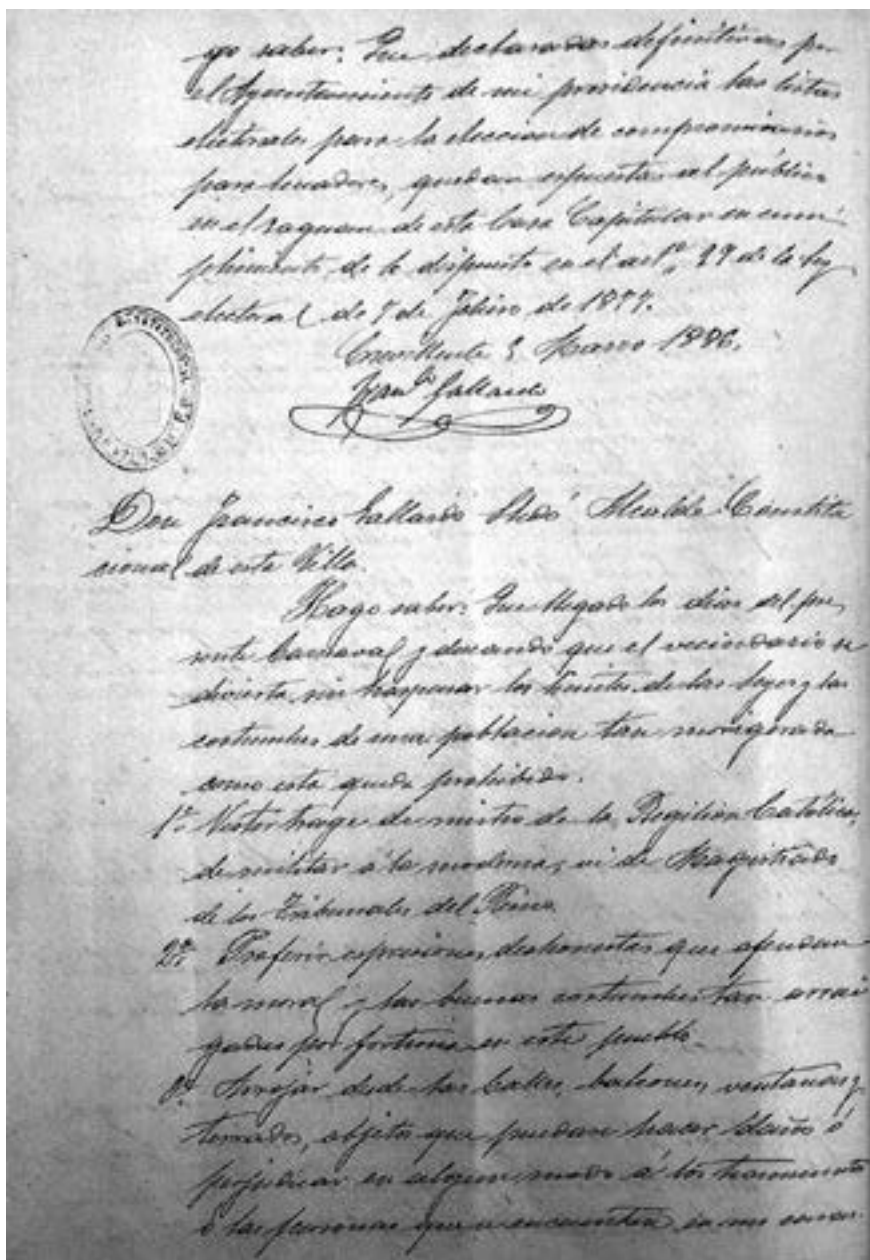 go saber: Que declaradas definitivas por
el Ayuntamiento de mi presidencia las listas
electorales para la eleccion de compromisarios
para Senadores, quedan espuestas al público
en el zaguan de esta Casa Capitular en cum-
plimiento de lo dispuesto en el artº. 29 de la ley
electoral de 8 de Febrero de 1877.
Crevillente 3 Marzo 1886.
Franco Gallardo
Don Francisco Gallardo Alcalde Constitu
cional de esta Villa.
Hago saber: Que llegado los dias del pre
sente Carnaval y deseando que el vecindario se
divierta, sin traspasar los limites de las leyes y las
costumbres de una poblacion tan morigerada
como esta queda prohibido.
1º. Vestir trage de mistro de la Religion Católica,
de militar á la moderna, ni de Magistrado
de los Tribunales del Reino.
2º. Proferir espresiones deshonestas que ofendan
la moral y las buenas costumbres tan arrai
gadas por fortuna en este pueblo.
3º. Arrojar desde las Calles, balcones, ventanas y
terrados, objetos que puedan hacer daños ó
perjudicar en algun modo á los transeuntes
ó las personas que se encuentren en